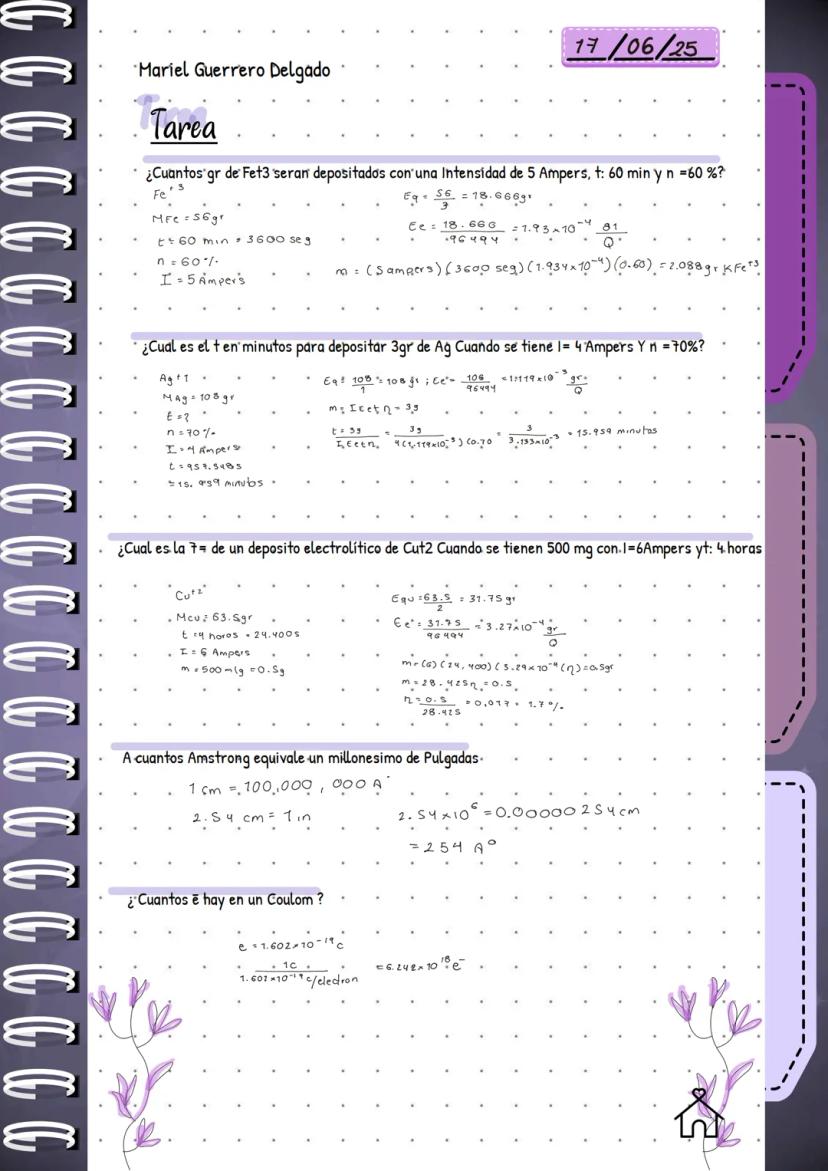 17/06/25
Mariel Guerrero Delgado
Tarea
Tarea
¿Cuantos gr de Fet3 seran depositados con una Intensidad de 5 Ampers, t: 60 min y n =60 %?
Fe+3
MFe = 56gr
t = 60 min = 3600 seg
n = 60%
I = 5 Ampers
Eq = 56/3 = 18.666gr
Ee = 18.666/96494 = 1.93x10-4 g1/Q
m = (5 ampers)(3600 seg)(1.934x10-4)(0.60) = 2.088gr KFe+3
¿Cual es el t en minutos para depositar 3gr de Ag Cuando se tiene I= 4 Ampers Y n =70%?
Ag+1
MAg = 108 gr
t = ?
n = 70%
I = 4 Ampers
t = 957.548s
= 15.959 minutos
Eq = 108/1 = 108 gr ; Ee = 108/96494 = 1.119x10-3 gr/Q
m = I Ee t η = 3g
t = 3g/I Ee t n = 3g/4(1.119x10-3)(0.70 = 3/3.133x10-3 = 15.959 minutos
¿Cual es la 7= de un deposito electrolítico de Cut2 Cuando se tienen 500 mg con I=6Ampers yt: 4 horas
Cu+2
Mcu = 63.5gr
t = 4 horas = 24.400s
I = 6 Ampers
m = 500mg = 0.5g
Equ = 63.5/2 = 31.75 gr
Ee = 31.75/96494 = 3.27x10-4 gr/Q
m = (6)(24,400)(3.29x10-4(η) = 0.5gr
m = 28.425η = 0.5
η = 0.5/28.425 = 0.017 = 1.7%
A cuantos Amstrong equivale un millonesimo de Pulgadas
1 cm = 100,000,000 A°
2.54 cm = 1 in
2.54x106 = 0.00000254cm
= 254 A°
¿Cuantos ē hay en un Coulom ?
e = 1.602x10-19c
1c/1.602x10-19c/electron = 6.242x1018 e-